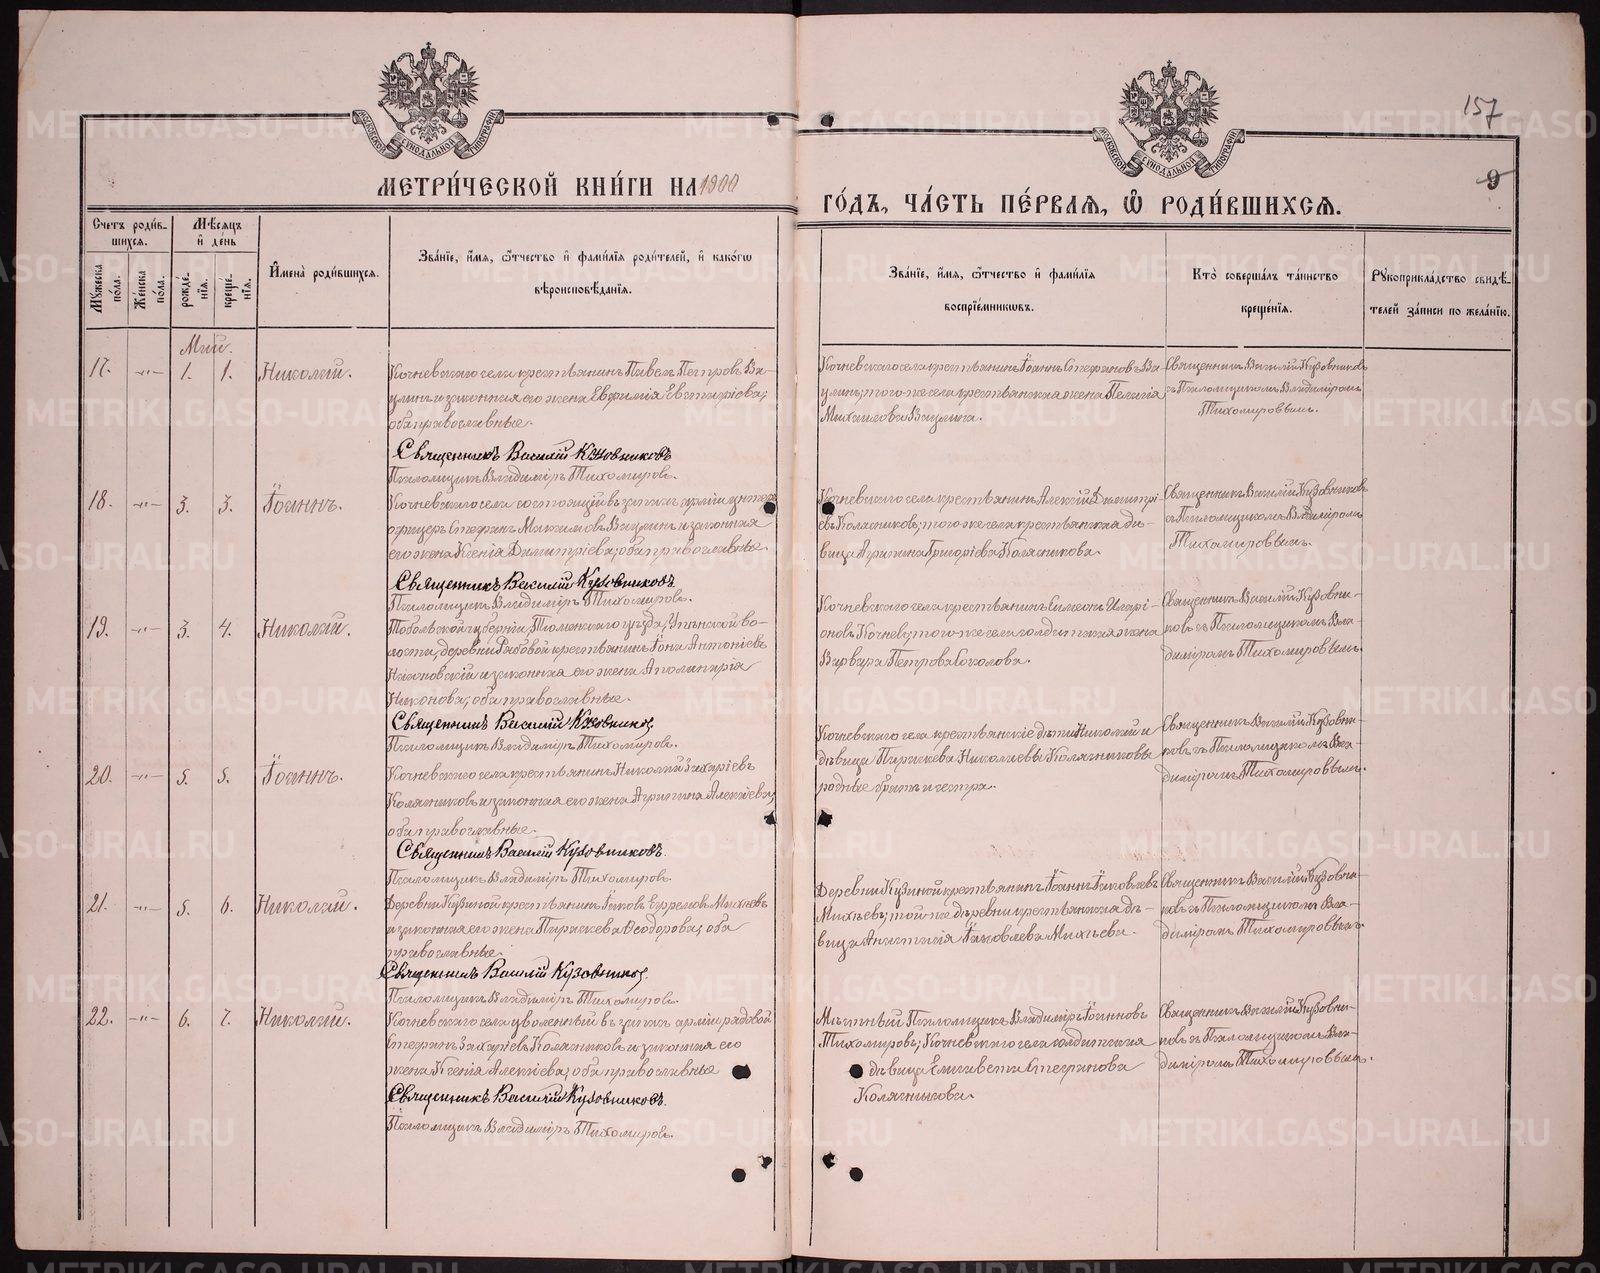 157
9
МЕТРИ́ЧЕСКОЙ КНИ́ГИ НА 1900
ГО́ДЪ, ЧА́СТЬ ПЕ́РВАЯ, Ѽ РОДИ́ВШИХСЯ.
Счетъ роди́в-
шихся.
Мѣ́сяцъ
и҆ де́нь
Му́жеска
по́ла.
Же́нска
по́ла.
рожде́-
нїя.
креще́-
нїя.
И҆мена̀ роди́вшихся.
Зва́нїе, и҆́мя, ѻ҆́тчество и҆ фами́лїя роди́телей, и҆ како́гѡ
вѣроисповѣ́данїя.
Зва́нїе, и҆́мя, ѻ҆́тчество и҆ фами́лїя
воспрїе́мниковъ.
Кто̀ соверша́лъ та́инство
креще́нїя.
Рꙋкоприкла́дство свидѣ́-
телей за́писи по жела́нїю.
Май.
17. -"- 1. 1. Николай.
Кочневскаго села крестьянинъ Павелъ Петровъ Ва-
улинъ и законная его жена Евфимія Евстафіева;
оба православные.
Священникъ Василій Кузовниковъ
Псаломщикъ Владиміръ Тихомировъ.
Кочневскаго села крестьянинъ Іоаннъ Стефановъ Ва-
улинъ; того же села крестьянская жена Пелагія
Михаилова Ваулина.
Священникъ Василій Кузовниковъ
съ Псаломщикомъ Владиміромъ
Тихомировымъ.
18. -"- 3. 3. Іоаннъ.
Кочневскаго села состоящій въ запасѣ арміи унтеръ
офицеръ Стефанъ Максимовъ Ваулинъ и законная
его жена Ксенія Димитріева; оба православные
Священникъ Василій Кузовниковъ
Псаломщикъ Владиміръ Тихомировъ.
Кочневскаго села крестьянинъ Алексій Димитрі-
евъ Колясниковъ; того же села крестьянская дѣ-
вица Агрипина Григоріева Колясникова.
Священникъ Василій Кузовниковъ
съ Псаломщикомъ Владиміромъ
Тихомировымъ.
19. -"- 3. 4. Николай.
Тобольской губерніи, Тюменскаго уѣзда, во-
лости, деревни крестьянинъ Іона Антоніевъ
и законная его жена Аполинарія
Никонова; оба православные.
Священникъ Василій Кузовниковъ
Псаломщикъ Владиміръ Тихомировъ.
Кочневскаго села крестьянинъ Симеонъ Иларі-
оновъ Кочневъ; того же села солдатская жена
Варвара Петрова Соколова.
Священникъ Василій Кузовни-
ковъ съ Псаломщикомъ Вла-
диміромъ Тихомировымъ.
20. -"- 5. 5. Іоаннъ.
Кочневскаго села крестьянинъ Николай Захаріевъ
Колясниковъ и законная его жена Агрипина Алексіева;
оба православные.
Священникъ Василій Кузовниковъ.
Псаломщикъ Владиміръ Тихомировъ.
Кочневскаго села крестьянскіе дѣти Николай и
дѣвица Параскева Николаевы Колясниковы
родные братъ и сестра.
Священникъ Василій Кузовни-
ковъ съ Псаломщикомъ Вла-
диміромъ Тихомировымъ.
21. -"- 5. 6. Николай.
Деревни Кузиной крестьянинъ Іаковъ Ефремовъ Михѣевъ
и законная его жена Параскева Ѳеодорова; оба
православные.
Священникъ Василій Кузовниковъ.
Псаломщикъ Владиміръ Тихомировъ.
Деревни Кузиной крестьянинъ Іоаннъ Іаковлевъ
Михѣевъ; той же деревни крестьянская дѣ-
вица Анастасія Іаковлева Михѣева.
Священникъ Василій Кузовни-
ковъ съ Псаломщикомъ Вла-
диміромъ Тихомировымъ
22. -"- 6. 7. Николай.
Кочневскаго села уволенный въ запасъ арміи рядовой
Стефанъ Захаріевъ Колясниковъ и законная его
жена Ксенія Алексіева; оба православные
Священникъ Василій Кузовниковъ.
Псаломщикъ Владиміръ Тихомировъ.
Мѣстный Псаломщикъ Владиміръ Іоанновъ
Тихомировъ; Кочневскаго села солдатская
дѣвица Елисавета Стефанова
Колясникова.
Священникъ Василій Кузовни-
ковъ съ Псаломщикомъ Вла-
диміромъ Тихомировымъ.
METRIKI.GASO-URAL.RU